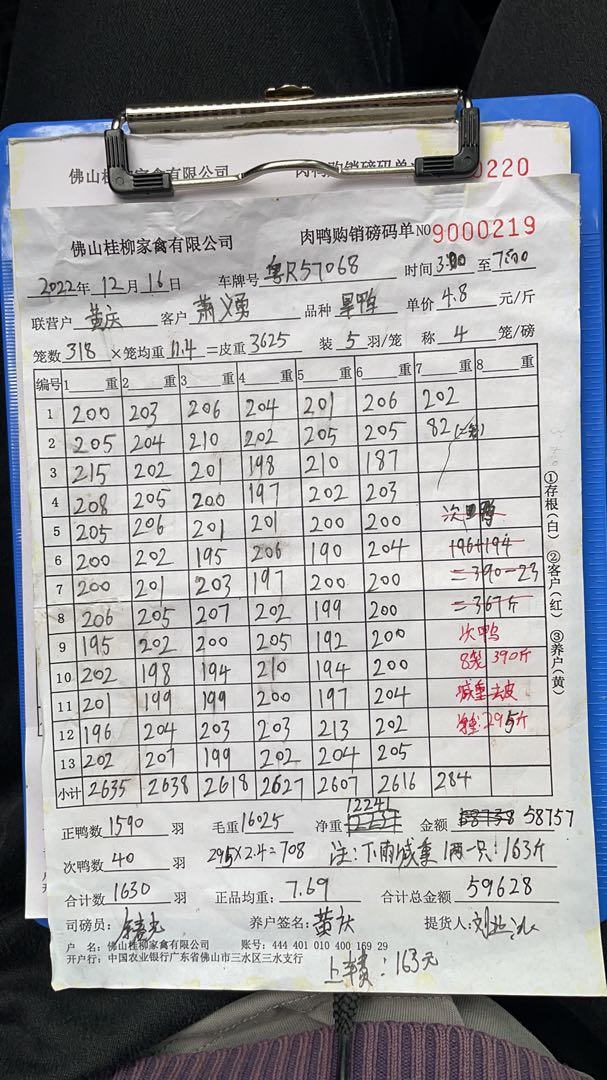 佛山桂柳家禽有限公司 肉鸭购销磅码单 0220
佛山桂柳家禽有限公司 肉鸭购销磅码单 NO 9000219
2022年 12月 16日 车牌号 粤R57068 时间 3:00 至 7:00
联营户 黄庆 客户 萧义勇 品种 单价 4.8 元/斤
笼数 318 ×笼均重 11.4 =皮重 3625 装 5 羽/笼 称 4 笼/磅
编号 1 重 2 重 3 重 4 重 5 重 6 重 7 重 8 重
1 200 203 206 204 201 206 202
2 205 204 210 202 205 205 82
3 215 202 201 198 210 187
4 208 205 200 197 202 203
5 205 206 201 201 200 200 次
6 200 202 195 206 190 204 196+194
7 200 201 203 197 200 200 =390-23
8 206 205 207 202 199 200 =367斤
9 195 202 200 205 192 200 次鸭
10 202 198 194 210 194 200 8笼 390斤
11 201 199 199 200 197 204 减重去皮
12 196 204 203 203 213 202 295斤
13 202 207 199 202 204 205
小计 2635 2638 2618 2627 2607 2616 284
①存根(白) ②客户(红) ③养户(黄)
12241
正鸭数 1590 羽 毛重 16025 净重 金额 58757
次鸭数 40 羽 295×2.4=708 注:下雨减重1两一只:163斤
合计数 1630 羽 正品均重: 7.69 合计总金额 59628
司磅员: 养户签名: 黄庆 提货人:
户 名: 佛山桂柳家禽有限公司 账号: 444 401 010 400 169 29
开户行: 中国农业银行广东省佛山市三水区三水支行
上车费:163元